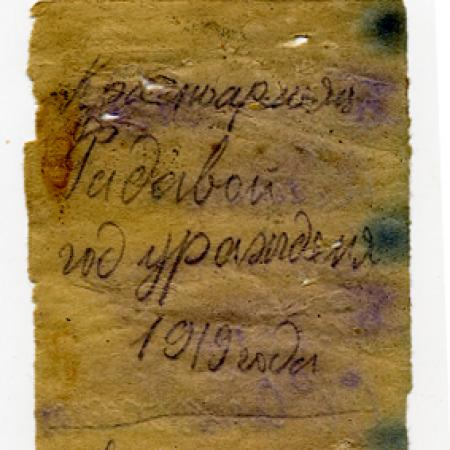 Красноармеец
Радавой
год урождения
1919 года